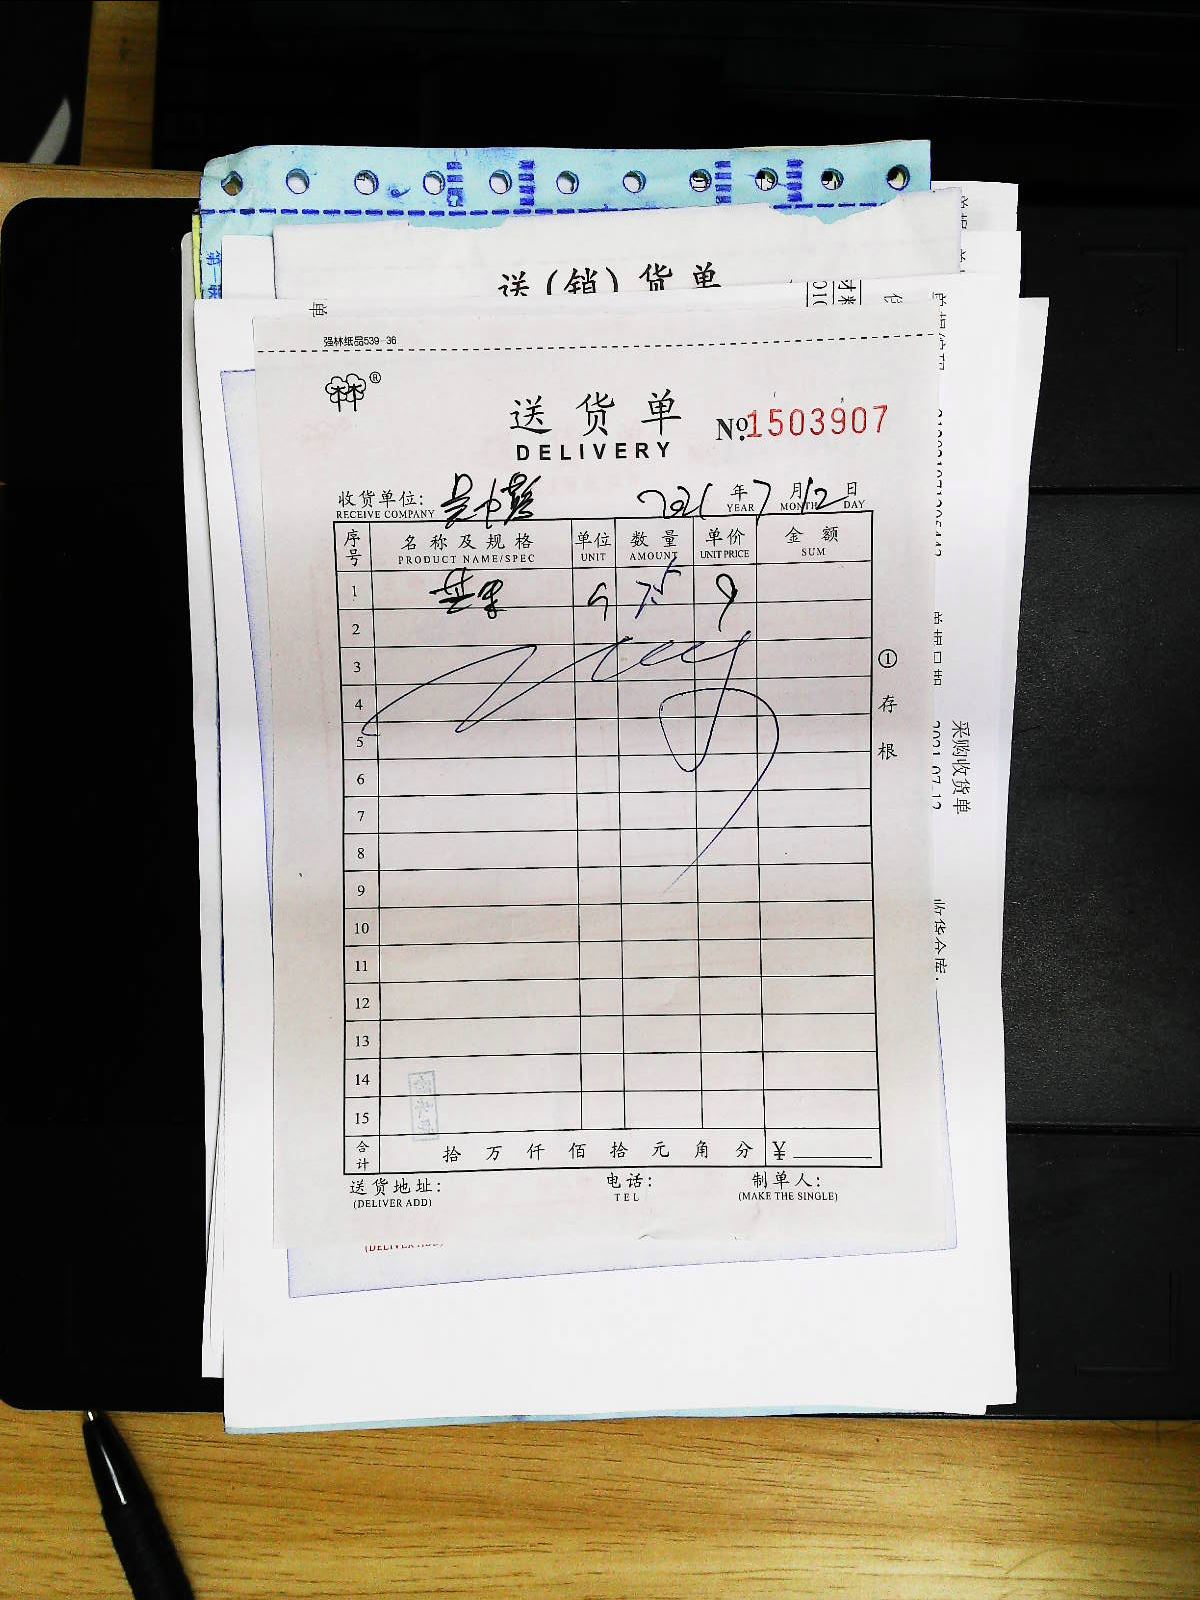 送(销)货单
单
强林纸品539-36
®
送货单
DELIVERY
№1503907
收货单位:
RECEIVE COMPANY
2021年7月12日
YEAR MONTH DAY
序号 名称及规格 单位 数量 单价 金额
PRODUCT NAME/SPEC UNIT AMOUNT UNIT PRICE SUM
1 75 9
2
3
4
5
6
7
8
9
10
11
12
13
14
15
合计 拾 万 仟 佰 拾 元 角 分 ¥
送货地址: 电话: 制单人:
(DELIVER ADD) TEL (MAKE THE SINGLE)
①存根
采购收货单
2021-07-12
(DELIVER ADD)